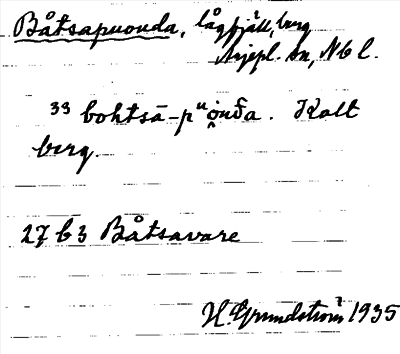 Båtsapuonda, lågfjäll, berg
Arjepl. sn, Nbl.
33 bohtsā-pᵘo̭nđa. Kalt
berg.
27 b 3 Båtsavare
H. Grundström 1935